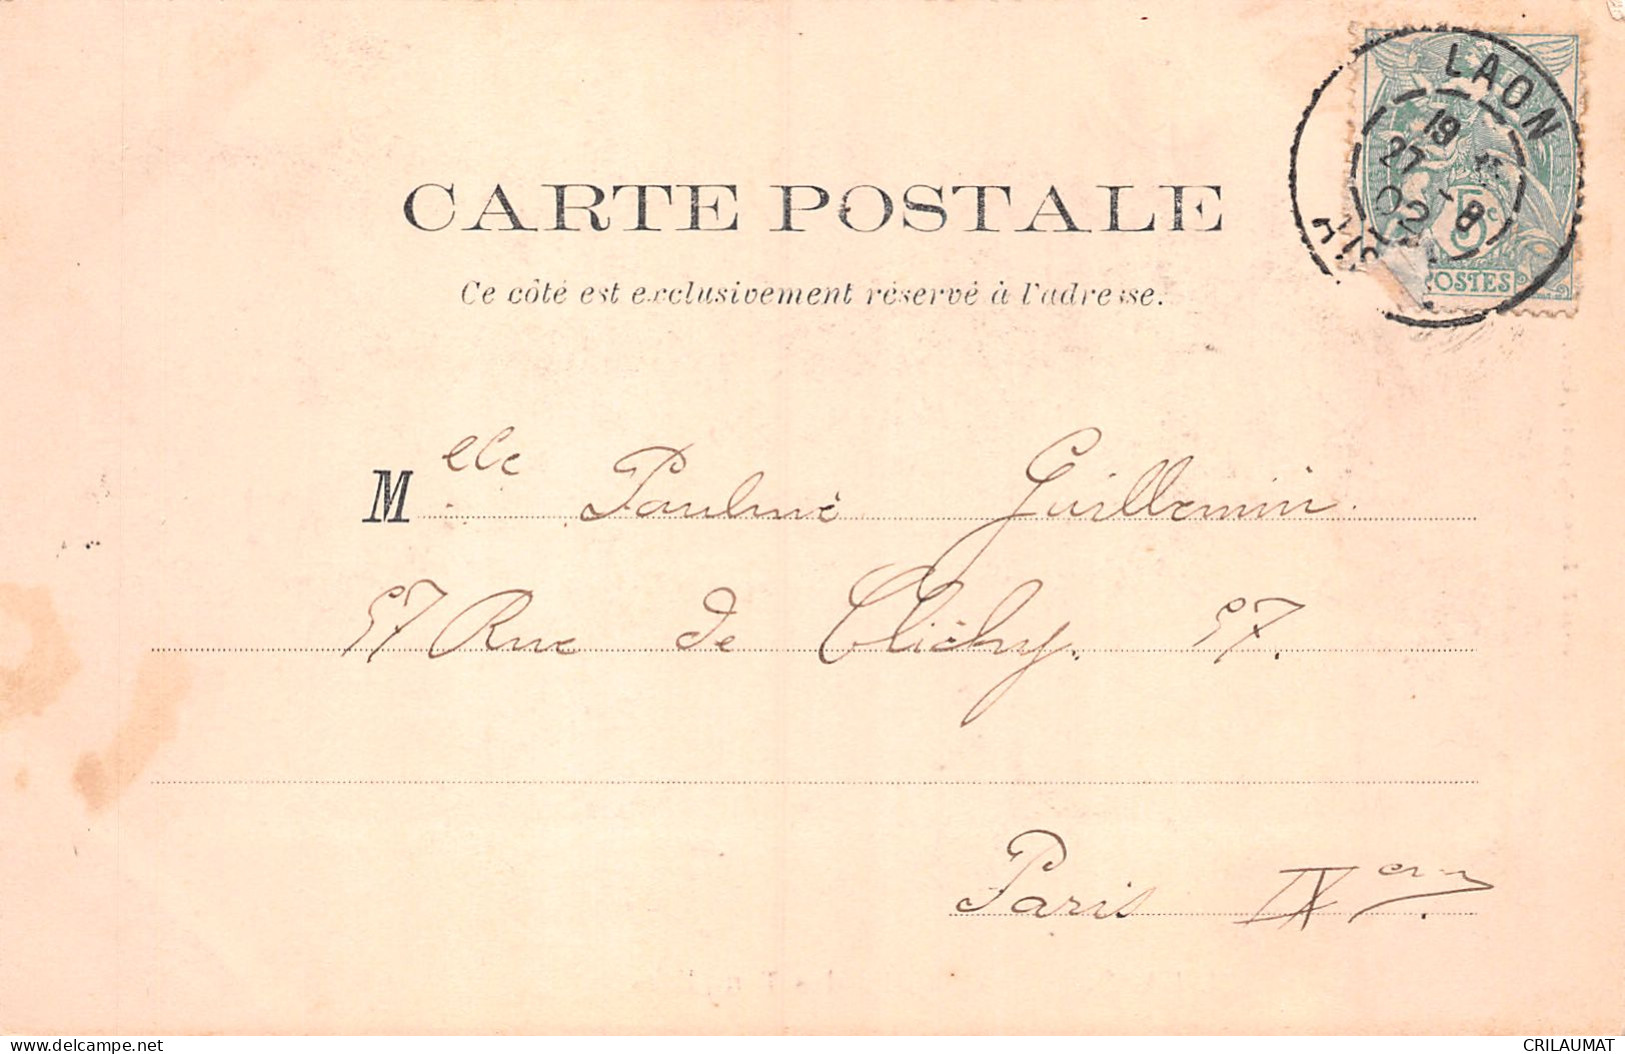 LAON
19
27 - 8
02
5c
POSTES
CARTE POSTALE
Ce côté est exclusivement réservé à l'adresse.
Melle Pauline Guillemin.
57 Rue de Clichy. 57.
Paris IXem.
www.delcampe.net
CRILAUMAT